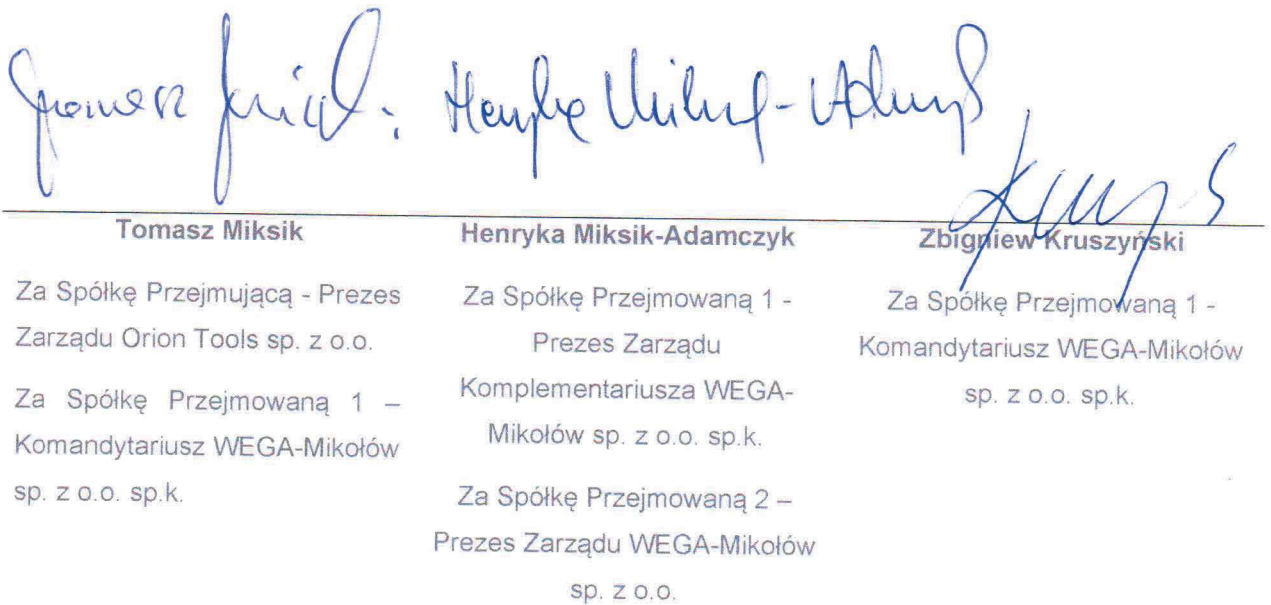 Tomasz Miksik
Za Spółkę Przejmującą - Prezes
Zarządu Orion Tools sp. z o.o.
Za Spółkę Przejmowaną 1 –
Komandytariusz WEGA-Mikołów
sp. z o.o. sp.k.
Henryka Miksik-Adamczyk
Za Spółkę Przejmowaną 1 -
Prezes Zarządu
Komplementariusza WEGA-
Mikołów sp. z o.o. sp.k.
Za Spółkę Przejmowaną 2 –
Prezes Zarządu WEGA-Mikołów
sp. z o.o.
Zbigniew Kruszyński
Za Spółkę Przejmowaną 1 -
Komandytariusz WEGA-Mikołów
sp. z o.o. sp.k.